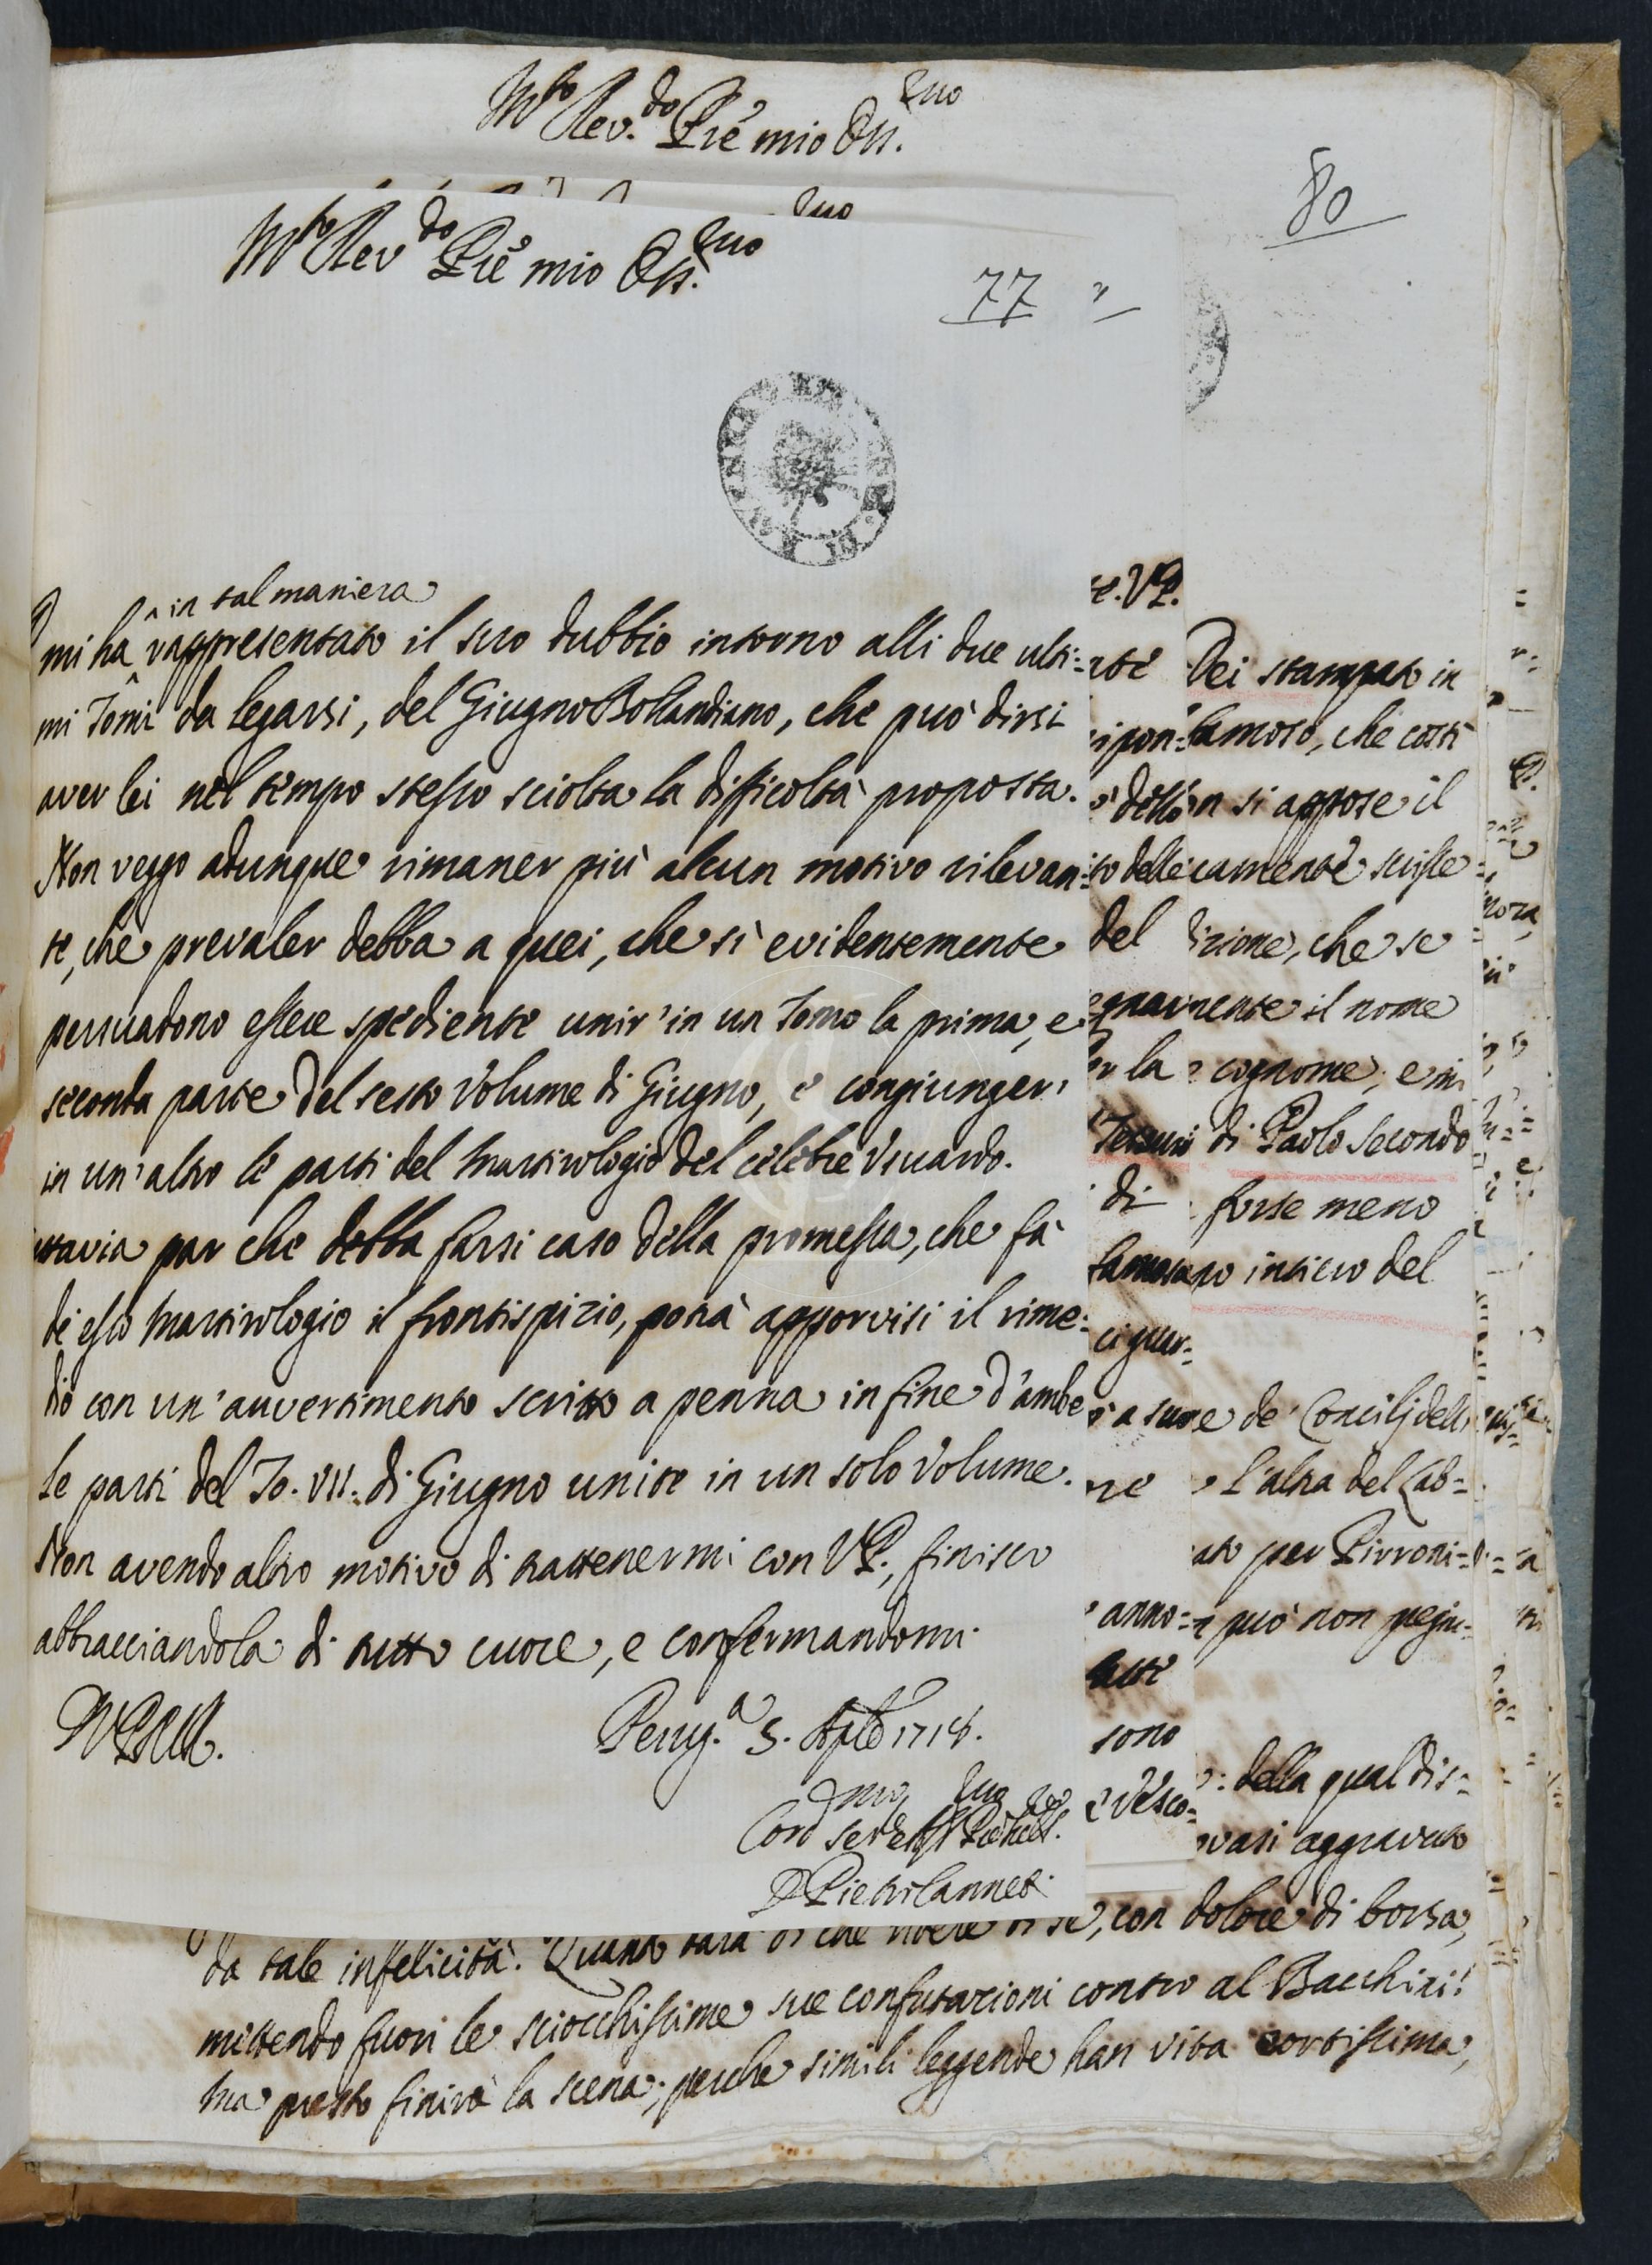 Mto Rev.do Pre mio Oss.mo
80
Mto Revdo Pre mio Oss.mo
77
in tal maniera
mi ha rappresentato il suo dubbio intorno alli due ulti=
mi Tomi da legarsi, del Giugno Bollandiano, che può dirsi
aver lei nel tempo stesso sciolta la difficoltà proposta.
Non veggo adunque rimaner più alcun motivo rilevan=
te, che prevaler debba a quei, che sì evidentemente
persuadono essere spediente unir' in un Tomo la prima, e
seconda parte del sesto Volume di Giugno, e congiunger
in un'altro le parti del Martirologio del celebre Usuardo.
ttavia par che debba farsi caso della promessa, che fà
di esso Martirologio il frontispizio, potrà apporvisi il rime=
dio con un'avvertimento scritto a penna in fine d'ambe
le parti del To. VII. di Giugno unite in un solo Volume.
Non avendo altro motivo di trattenermi con VP., finisco
abbracciandola di tutto cuore, e confermandomi
Perug.a 3. 1718.
D Pietro Canneti
te. VP.
del
di
ci guar=
anno=
sono
e Vesco=
Dei stampato in
famoso, che costì
n si appose il
camente scisse
izione, che se
mente il nome
cognome, e in
di Paolo Secondo
forse meno
po intiero del
e de' Concilj dell
l'altra del Cab=
ato per Pirroni=
può non pegiu=
della qual dis=
ovasi aggravato
con dolore di borsa,
da tale infelicità. Quanto sarà di che ridere di se,
mettendo fuori le sciocchissime sue confutazioni contro al Bacchini!
Ma presto finirà la scena; perche simili leggende han vita cortissima,